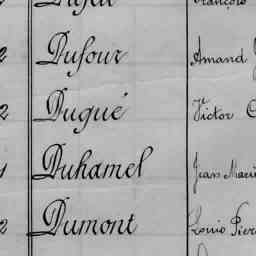 2 Dufour Amand
2 Dugué Victor
1 Duhamel Jean Marie
2 Dumont Louis Pierre